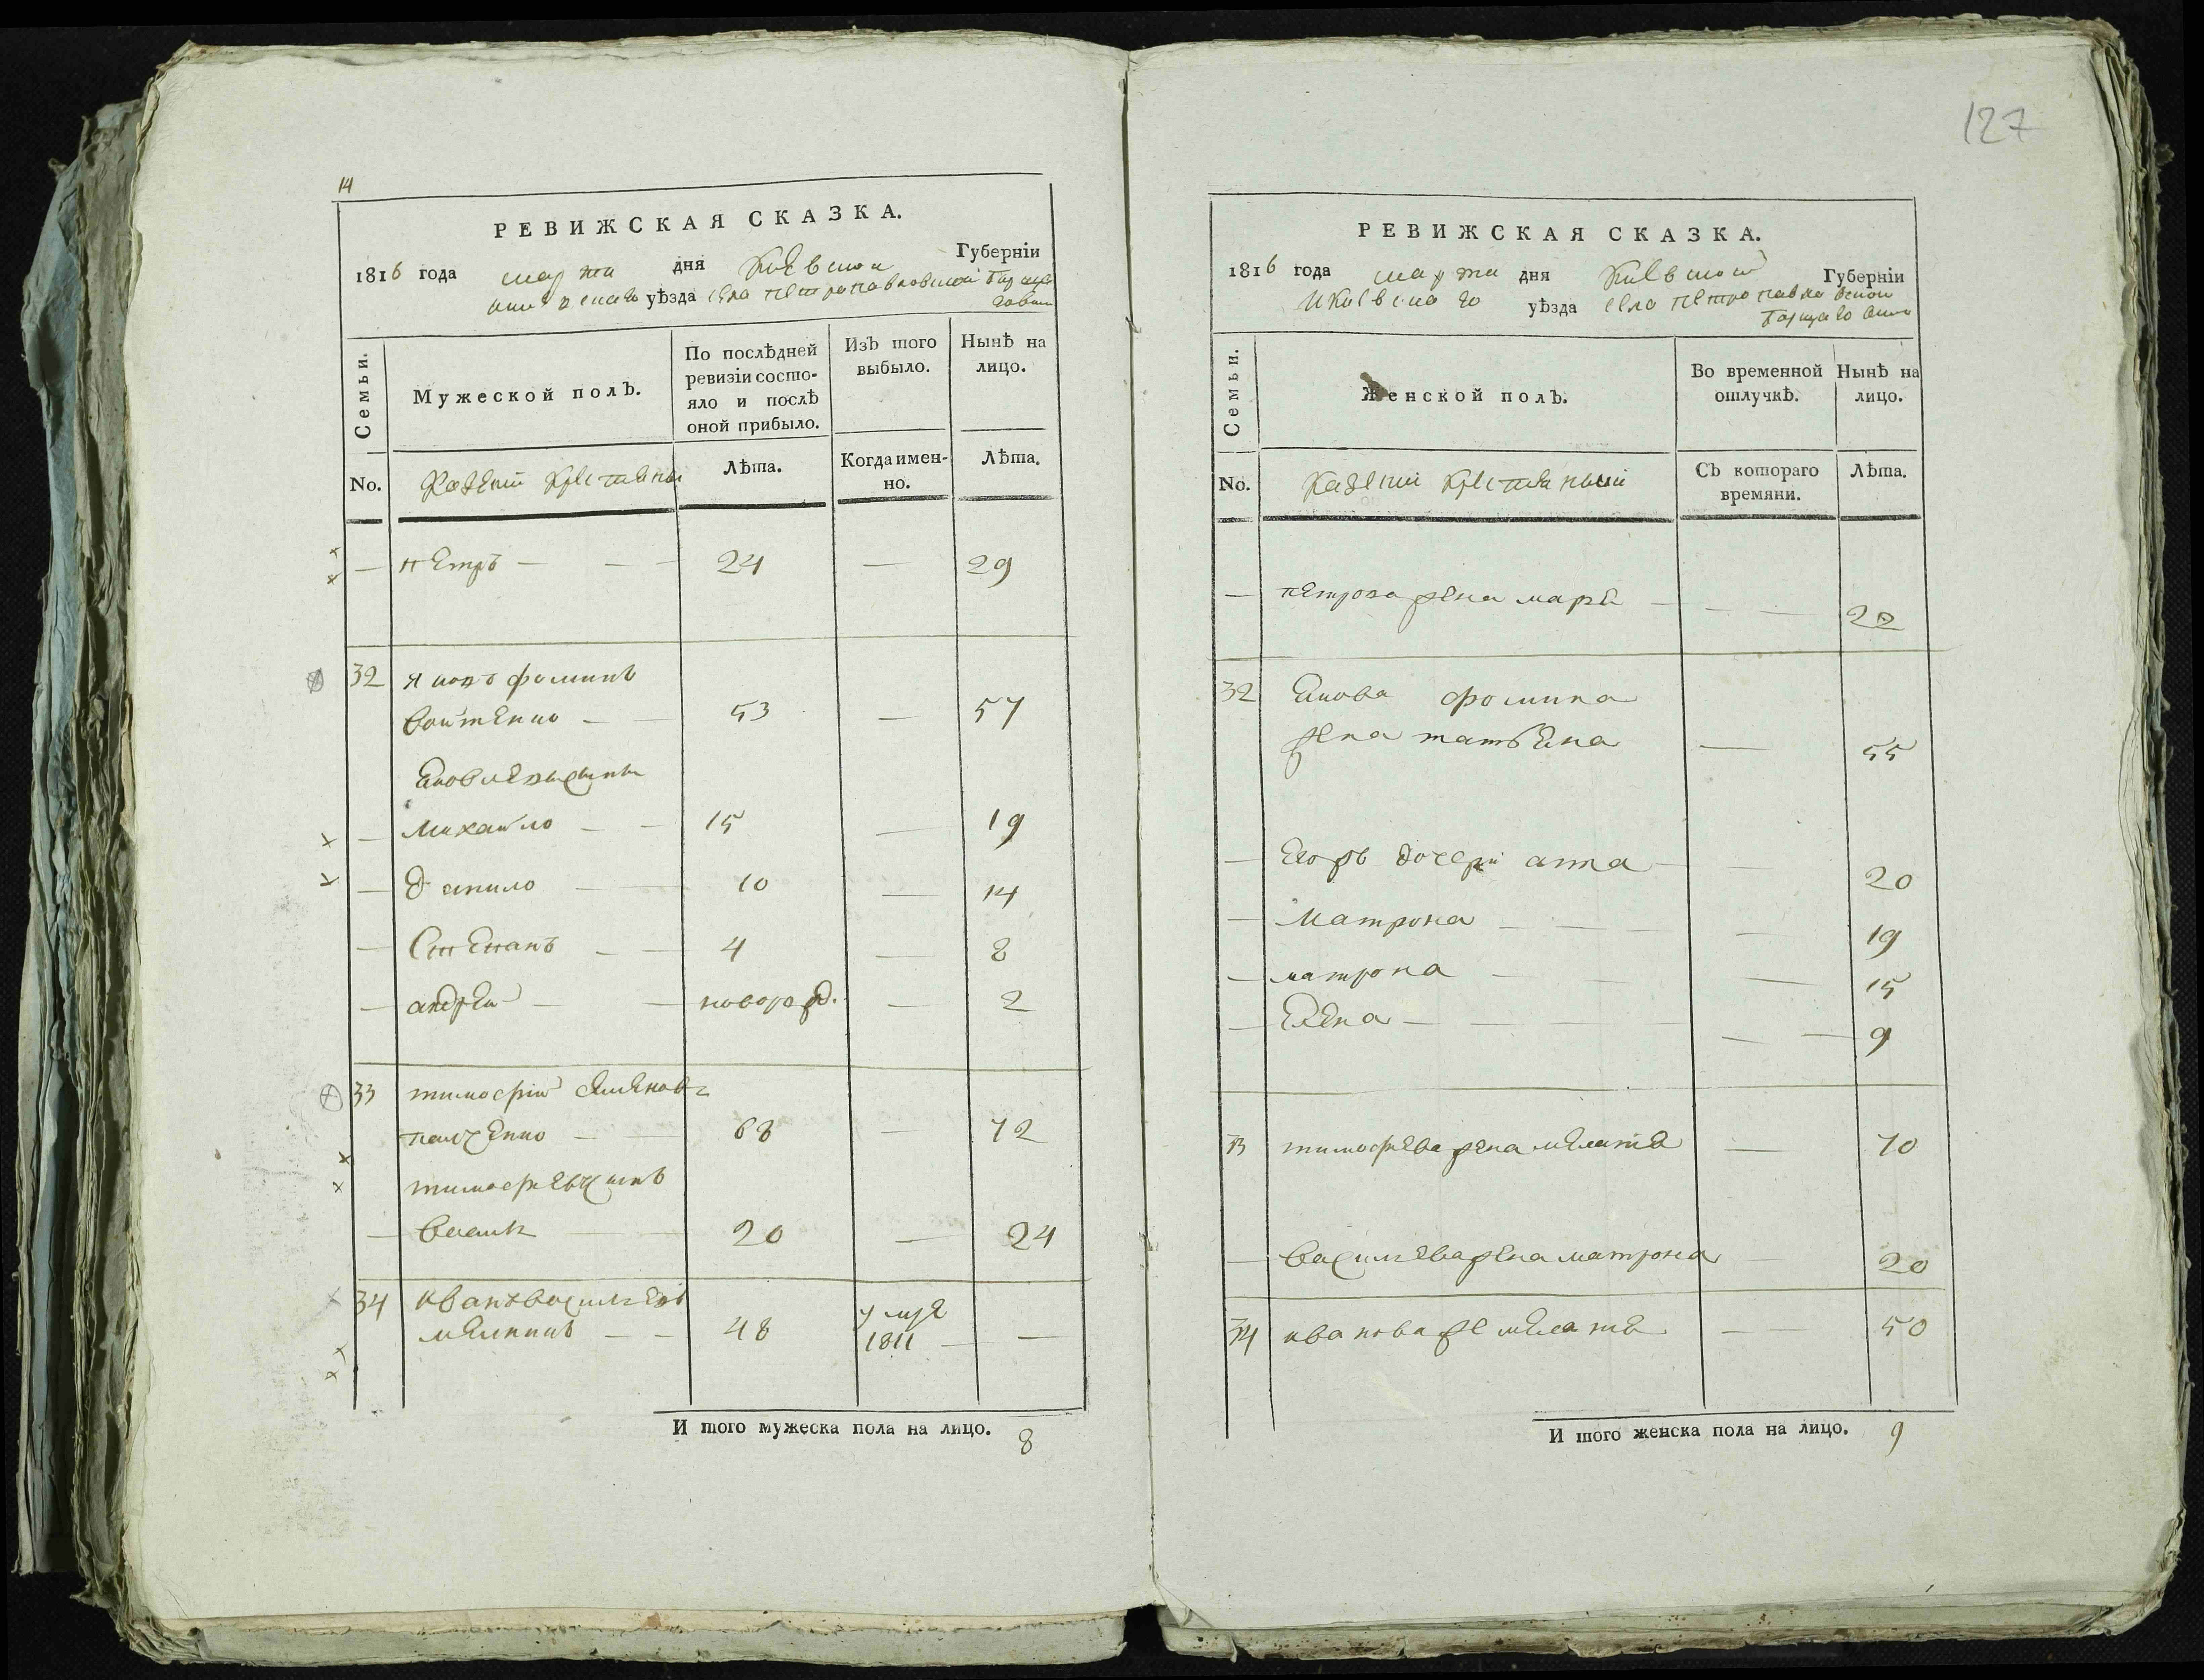 127
14
РЕВИЖСКАЯ СКАЗКА.
1816 года марта дня Киевской Губерніи
уѣзда села Петропавловской Борщаговки
Семьи.
Мужеской полъ.
По послѣдней ревизіи состо-
яло и послѣ
оной прибыло.
Изъ того
выбыло.
Нынѣ на
лицо.
No.
Казеніи Крестяны
Лѣта.
Когда имен-
но.
Лѣта.
— Петръ — — — 24 — 29
32 Яковъ Фоминъ
Войтенко — — 53 — 57
Яковлевы сыны
— Михайло — — 15 — 19
— Данило — 10 — 14
— Степанъ — — 4 — 8
— андрей — — новорожд. — 2
33 тимофій семенов
панченко — — 68 — 72
тимофеевъ сынъ
— васил — 20 — 24
34 иванъ василіевъ
— — 48 умре
1811 — —
И того мужеска пола на лицо. 8
РЕВИЖСКАЯ СКАЗКА.
1816 года марта дня Киевской Губерніи
Икиевскаго уѣзда села Петропавловской
Борщаговки
Семьи.
Женской полъ.
Во временной
отлучкѣ.
Нынѣ на
лицо.
No.
Казеніи Крестяны
Съ котораго
времяни.
Лѣта.
— петрова жена маря — — — 22
32 Якова фомина
жена татьяна — 55
— дочери анна — — 20
— Матрона — — — — 19
— матрона — — 15
— Елена — — — — — — 9
33 тимофѣева жена мелатя — 70
— василѣва жена матрона — 20
34 иванова же мелатя — 50
И того женска пола на лицо. 9